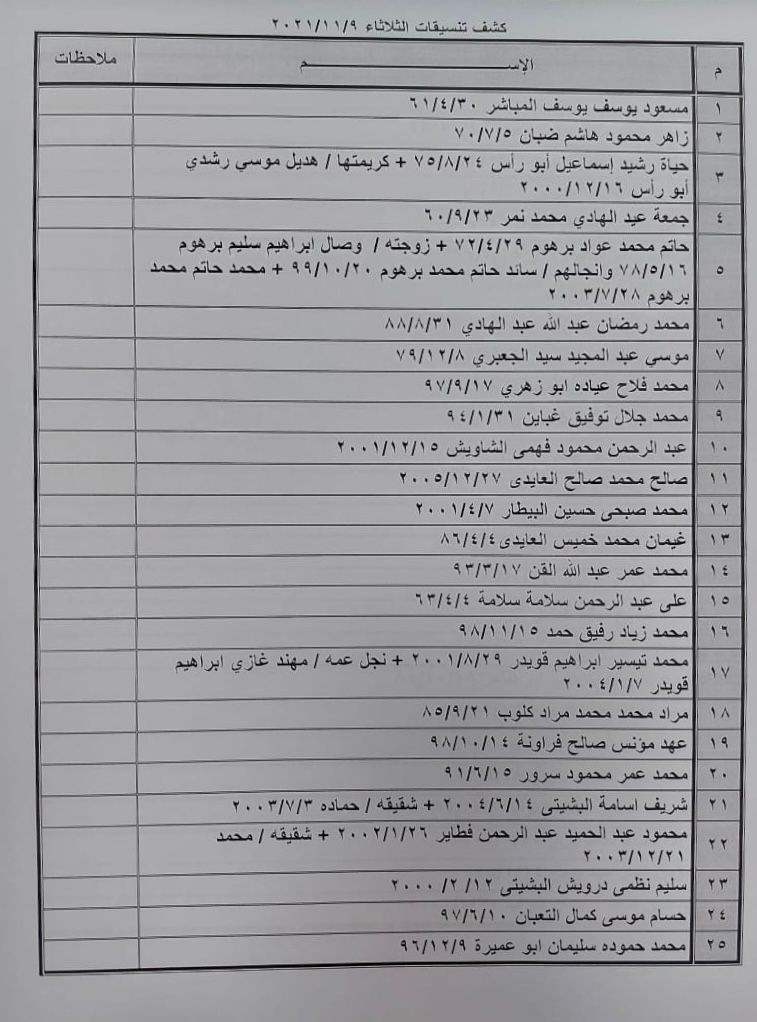 كشف تنسيقات الثلاثاء ٢٠٢١/١١/٩
م الإســـــــم ملاحظات
١ مسعود يوسف يوسف المباشر ٦١/٤/٣٠
٢ زاهر محمود هاشم ضبان ٧٠/٧/٥
٣ حياة رشيد إسماعيل أبو رأس ٧٥/٨/٢٤ + كريمتها / هديل موسي رشدي
أبو رأس ٢٠٠٠/١٢/١٦
٤ جمعة عبد الهادي محمد نمر ٦٠/٩/٢٣
٥ حاتم محمد عواد برهوم ٧٢/٤/٢٩ + زوجته / وصال ابراهيم سليم برهوم
٧٨/٥/١٦ وانجالهم / سائد حاتم محمد برهوم ٩٩/١٠/٢٠ + محمد حاتم محمد
برهوم ٢٠٠٣/٧/٢٨
٦ محمد رمضان عبد الله عبد الهادي ٨٨/٨/٣١
٧ موسي عبد المجيد سيد الجعبري ٧٩/١٢/٨
٨ محمد فلاح عياده ابو زهري ٩٧/٩/١٧
٩ محمد جلال توفيق غباين ٩٤/١/٣١
١٠ عبد الرحمن محمود فهمى الشاويش ٢٠٠١/١٢/١٥
١١ صالح محمد صالح العايدى ٢٠٠٥/١٢/٢٧
١٢ محمد صبحى حسين البيطار ٢٠٠١/٤/٧
١٣ غيمان محمد خميس العايدى ٨٦/٤/٤
١٤ محمد عمر عبد الله القن ٩٣/٣/١٧
١٥ على عبد الرحمن سلامة سلامة ٦٣/٤/٤
١٦ محمد زياد رفيق حمد ٩٨/١١/١٥
١٧ محمد تيسير ابراهيم قويدر ٢٠٠١/٨/٢٩ + نجل عمه / مهند غازي ابراهيم
قويدر ٢٠٠٤/١/٧
١٨ مراد محمد محمد مراد كلوب ٨٥/٩/٢١
١٩ عهد مؤنس صالح فراونة ٩٨/١٠/١٤
٢٠ محمد عمر محمود سرور ٩١/٦/١٥
٢١ شريف اسامة البشيتى ٢٠٠٤/٦/١٤ + شقيقه / حماده ٢٠٠٣/٧/٣
٢٢ محمود عبد الحميد عبد الرحمن فطاير ٢٠٠٢/١/٢٦ + شقيقه / محمد
٢٠٠٣/١٢/٢١
٢٣ سليم نظمى درويش البشيتى ١٢/ ٢/ ٢٠٠٠
٢٤ حسام موسى كمال التعبان ٩٧/٦/١٠
٢٥ محمد حموده سليمان ابو عميرة ٩٦/١٢/٩